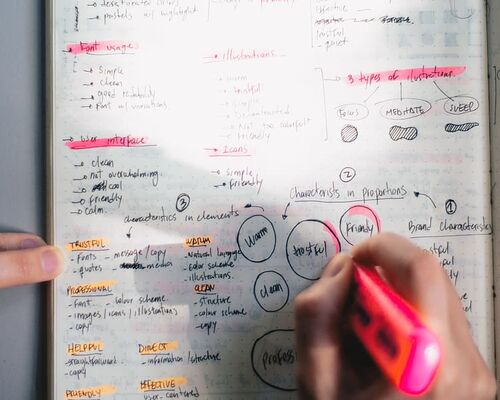 desaturated colors
pastels w/ highlight
Font usage
→ Simple
→ clean
→ good readability
→ Font w/ variations
User interface
→ clean
→ not overwhelming
→ cool
→ friendly
→ calm
illustrations
→ warm
→ trustful
→ simple
→ Not too colorful
→ friendly
→ Icons
→ simple
→ friendly
trustful
quiet
3 types of illustrations
FOCUS
MEDITATE
SLEEP
2
Characteristics in proportions
1
Brand characteristics
3
characteristics in elements
Warm
trustful
Friendly
Clean
TRUSTFUL
- Fonts - message/copy
- quotes
PROFESSIONAL
- Font - colour scheme
- images/icons/illustrations
- copy
HELPFUL
- straightforward
- copy
FRIENDLY
WARM
- Natural language
- Color scheme
- illustrations
CLEAN
- structure
- colour scheme
- copy
DIRECT
- information/structure
EFFECTIVE
- user-centered